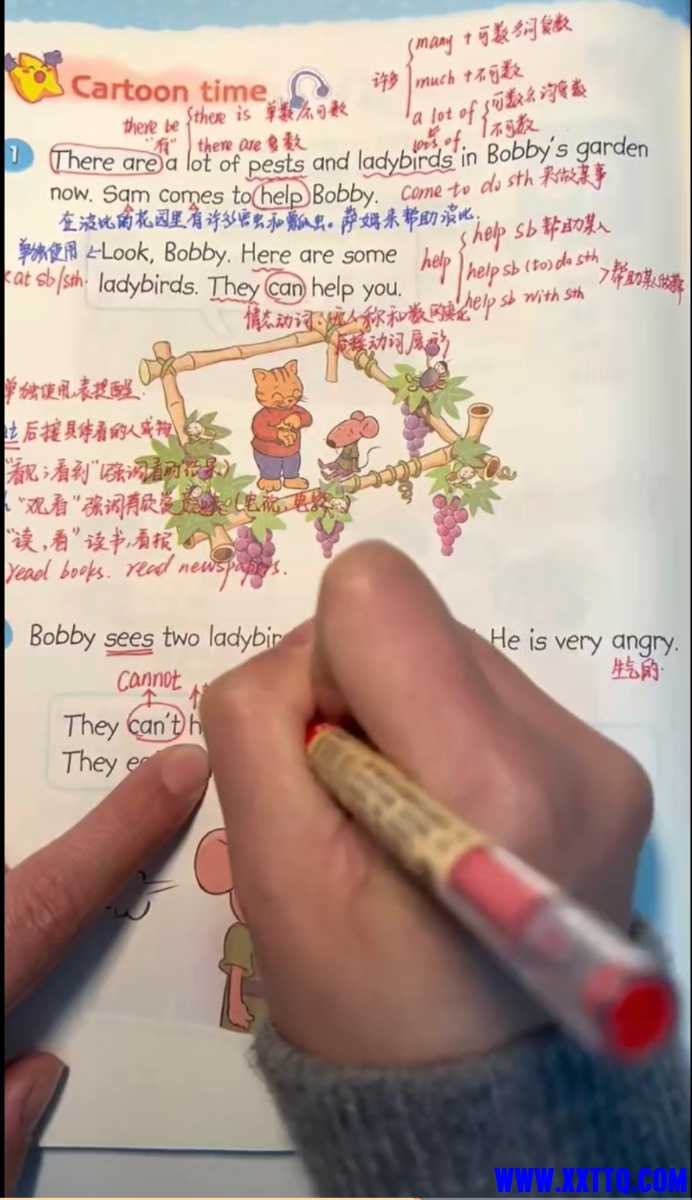 Cartoon time
there be
"有"
there is 单数/不可数
there are 复数
许多
many + 可数名词复数
much + 不可数
a lot of
lots of
可数名词复数
不可数
1
There are a lot of pests and ladybirds in Bobby's garden
now. Sam comes to help Bobby.
come to do sth 来做某事
在波比的花园里有许多害虫和瓢虫。萨姆来帮助波比.
单独使用
Look, Bobby. Here are some
ladybirds. They can help you.
at sb/sth.
help
help sb 帮助某人
help sb (to) do sth
help sb with sth
帮助某人做某事
情态动词:
人称和数的变化
后接动词原形
单独使用,表提醒.
后接具体看的人或物
"看见;看到"(强调看的结果)
"观看"强调有欣赏
"读,看"读书,看报
read books. read newspapers.
Bobby sees two He is very angry.
生气的.
cannot
They can't
They
WWW.XXTTQ.COM